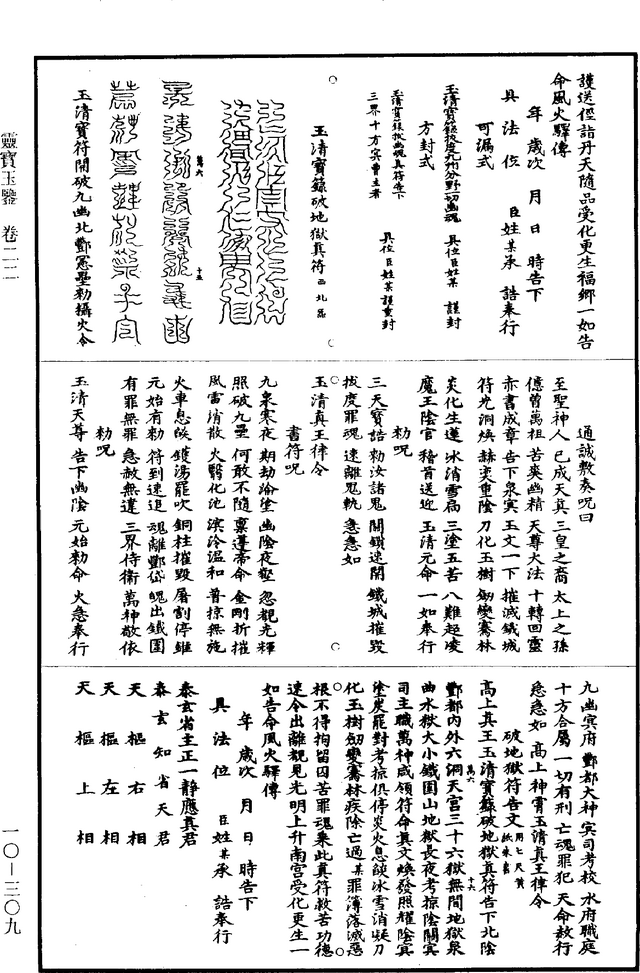 護送徑詣丹天隨品受化更生福鄉一如告
命風火驛傳
年歲次月日時告下
具法位臣姓某承誥奉行
可漏式
玉清寶籙拔度九州分野一切幽魂具位臣姓某謹封
方封式
玉清寶籙拔幽魂真符告下
三界十方冥曹主者具位臣姓某謹重封
玉清寶籙破地獄真符
玉清寶符開破九幽北酆惡壘勑攝火令
通誠敷奏呪曰
至聖神人已成天真三皇之裔太上之孫
億曾萬祖苦爽幽精天尊大法十轉回靈
赤書成章告下泉冥玉文一下摧滅鐵城
符光洞煥赫奕重陰刀化玉樹劒變騫林
炎化生蓮冰消雪扃三塗五苦八難起凌
魔王陰官稽首送迎玉清元命一如奉行
勑呪
三天寶誥勑汝諸鬼開鎖速開鐵城摧毀
拔度罪魂速離鬼軌急急如
玉清真王律令
書符呪
九泉寒夜期劫淪塗幽陰夜壑忽覩光輝
照破九壘何敢不隨稟蓬帝命金剛折摧
風雷消散火翳化池溟泠温和普掠無施
火車息燄鑊湯罷吹銅柱摧毀屠割停錐
元始有勑符到速追魂離酆岱魄出鐵圍
有罪無罪急赦無違三界侍衛萬神敬依
勑呪
玉清天尊告下幽陰元始勑命火急奉行
九幽冥府酆都大神冥司考校水府職庭
十方合屬一切有刑亡魂罪犯天命赦行
急急如高上神霄玉清真王律令
破地獄符告文
高上真王玉清寶籙破地獄真符告下北陰
酆都內外六洞天宮三十六獄無間地獄泉
曲水獄大小鐵圍山地獄長夜考掠陰關冥
司主職萬神咸領符命真文煥發照耀陰冥
塗炭罷對考掠俱停炎火息燄冰雪消凝刀
化玉樹劒變騫林疾除亡過某罪簿落滅惡
根不得拘留囚苦罪魂乘此真符救苦功德
速令出離覩見光明上升南宮受化更生一
如告命風火驛傳
年歲次月日時告下
具法位臣姓某承誥奉行
泰玄省主正一靜應真君
泰玄知省天君
天樞右相
天樞左相
天樞上相
靈寶玉鑒卷二二
一〇—三〇九